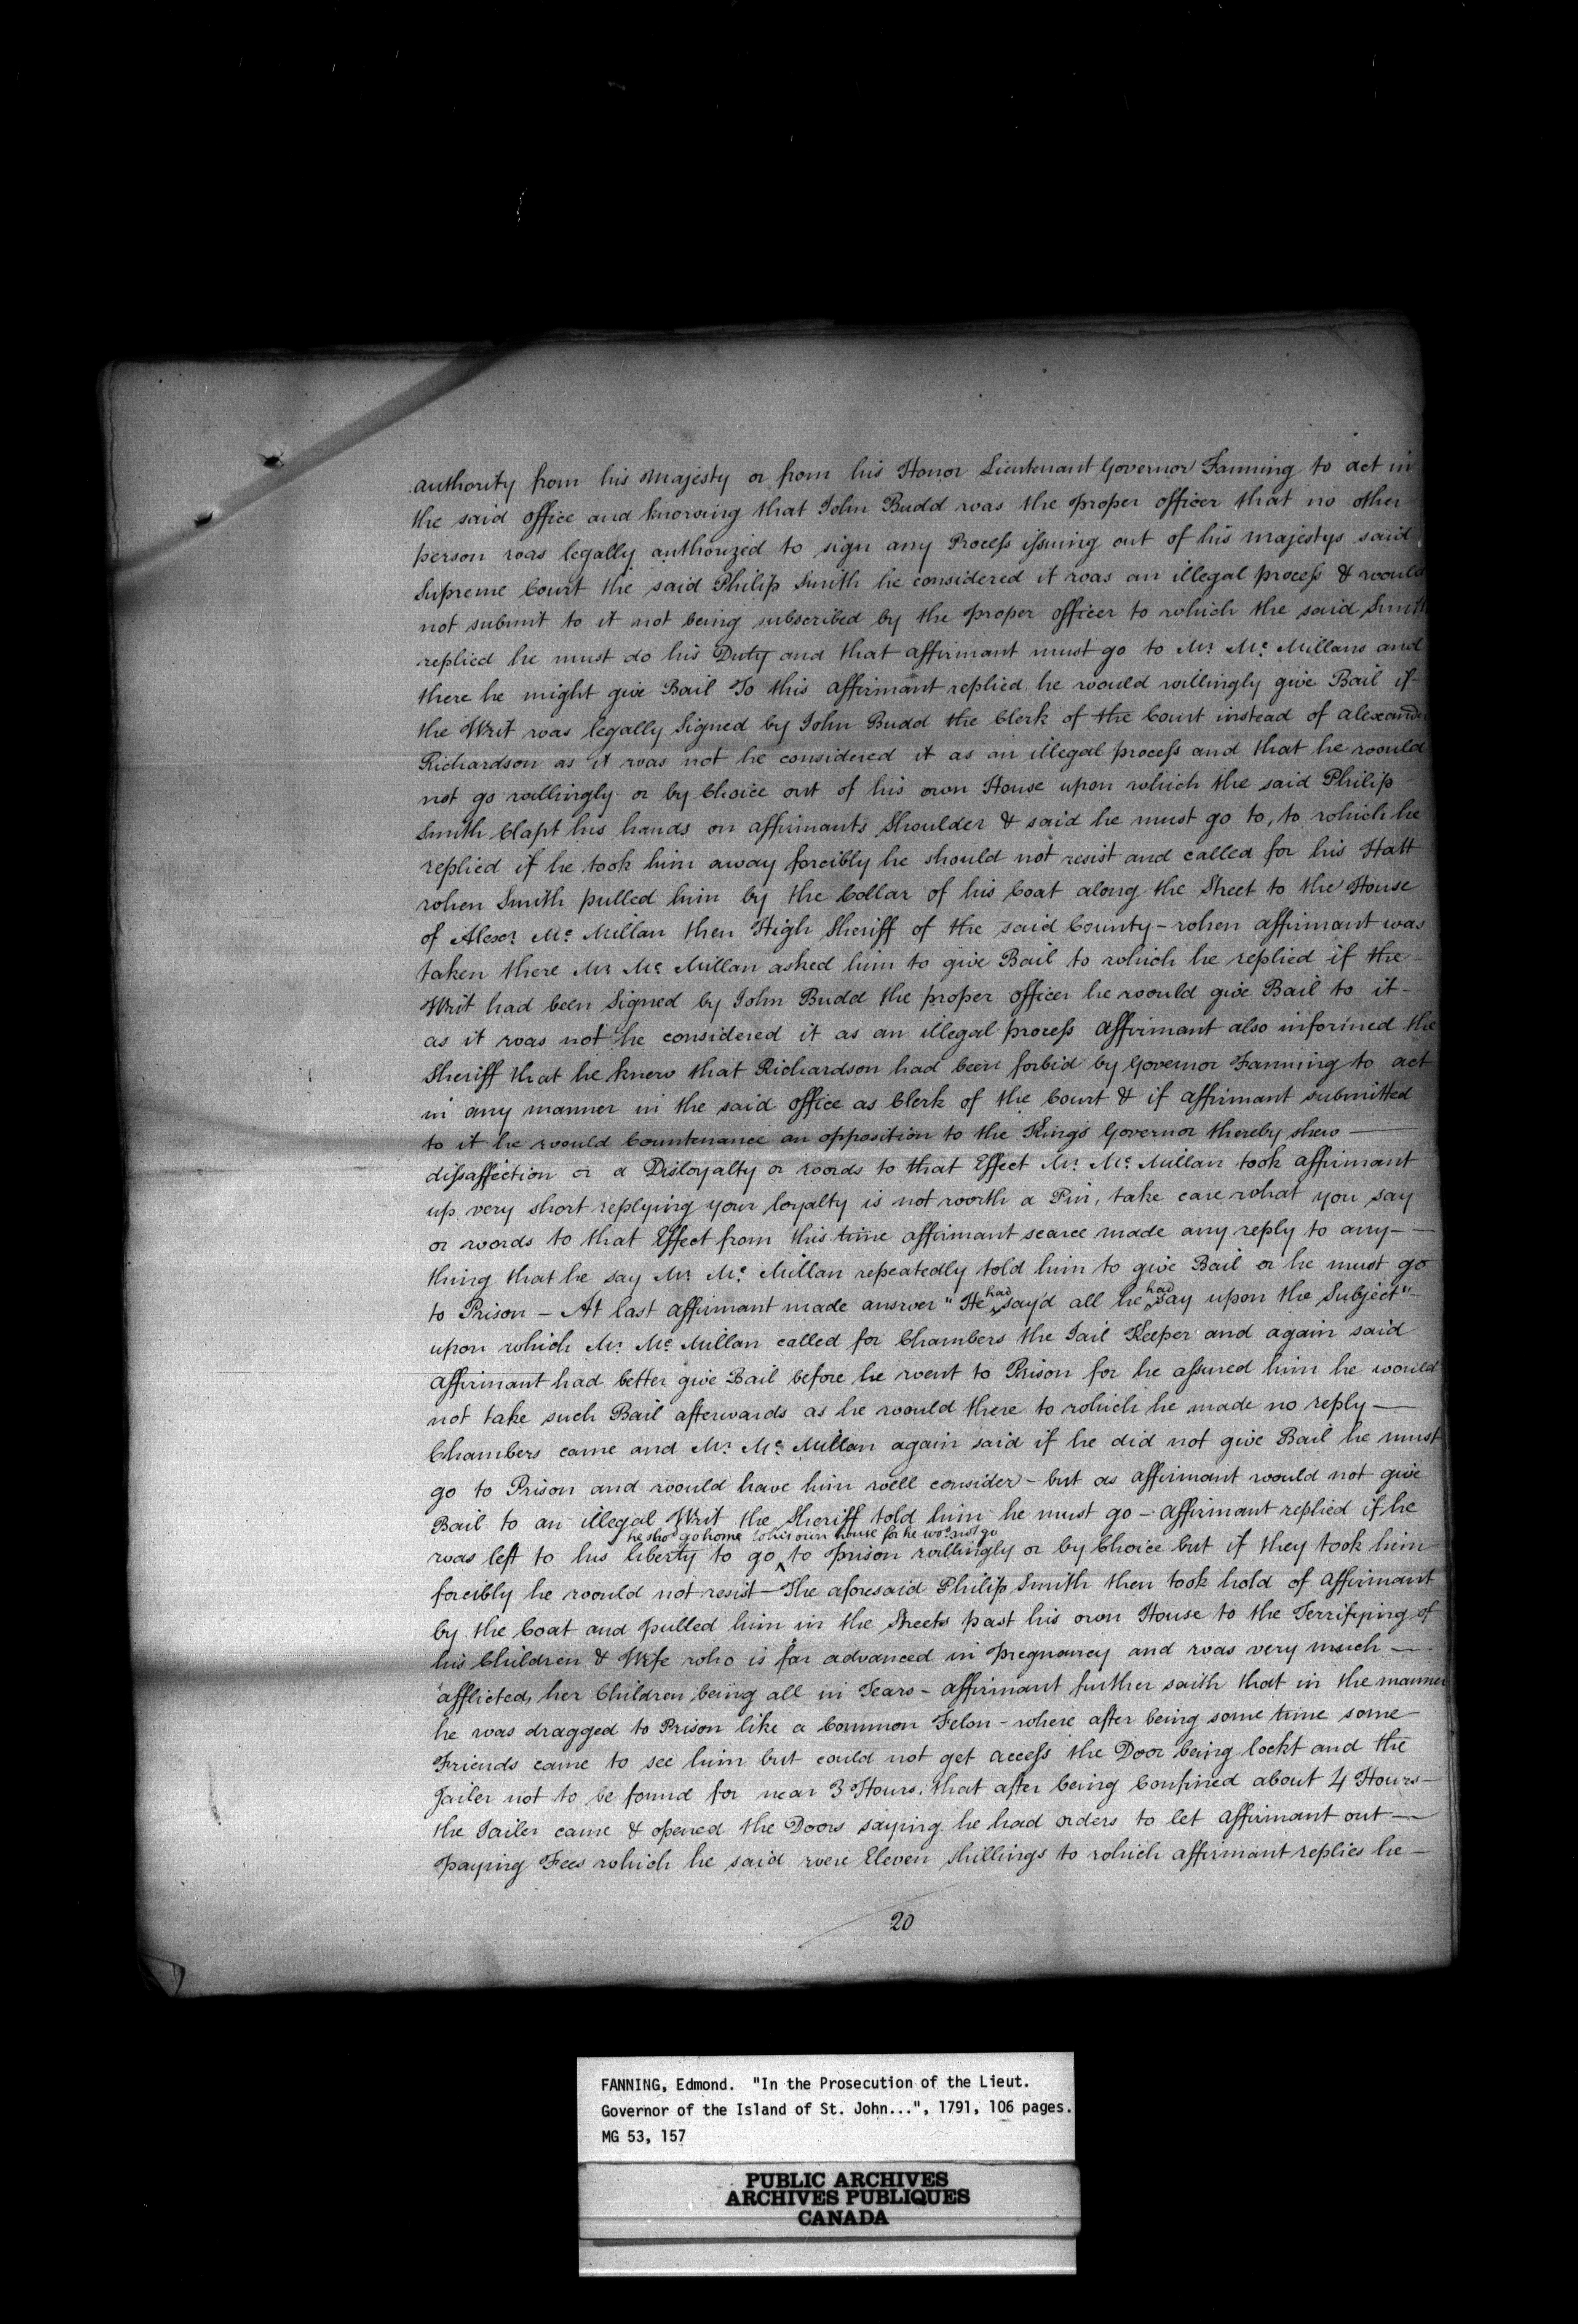 authority from his Majesty or from his Honor Lieutenant Governor Fanning to act in
the said office and knowing that John Budd was the proper officer that no other
person was legally authorized to sign any Process issuing out of his Majestys said
Supreme Court the said Philip Smith he considered it was an illegal process & would
not submit to it not being subscribed by the proper officer to which the said Smith
replied he must do his Duty and that affirmant must go to Mr. Mc. Millans and
there he might give Bail To this affirmant replied he would willingly give Bail if
the Writ was legally Signed by John Budd the Clerk of the Court instead of Alexander
Richardson as it was not he considered it as an illegal process and that he would
not go willingly or by Choice out of his own House upon which the said Philip
Smith Clapt his hands on affirmants Shoulder & said he must go to, to which he
replied if he took him away forcibly he should not resist and called for his Hatt
when Smith pulled him by the Collar of his Coat along the Street to the House
of Alexr. Mc. Millan then High Sheriff of the said County – when affirmant was
taken there Mr. Mc. Millan asked him to give Bail to which he replied if the –
Writ had been Signed by John Budd the proper officer he would give Bail to it –
as it was not he considered it as an illegal process affirmant also informed the
Sheriff that he knew that Richardson had been forbid by Governor Fanning to act
in any manner in the said office as Clerk of the Court & if affirmant submitted
to it he would Countenance an opposition to the Kings Governor thereby shew —
disaffection or a Disloyalty or words to that Effect Mr. Mc. Millan took affirmant
up very short replying your loyalty is not worth a Pin, take care what you say
or words to that Effect from this time affirmant scarce made any reply to any – —
thing that he say Mr. Mc. Millan repeatedly told him to give Bail or he must go
to Prison – At last affirmant made answer "He had say'd all he had say upon the Subject" –
upon which Mr. Mc. Millan called for Chambers the Jail Keeper and again said
affirmant had better give Bail before he went to Prison for he assured him he would
not take such Bail afterwards as he would there to which he made no reply —
Chambers came and Mr. Mc. Millan again said if he did not give Bail he must
go to Prison and would have him well consider – but as affirmant would not give
Bail to an illegal Writ the Sheriff told him he must go – affirmant replied if he
he shod. go home to his own house for he wod. not go
was left to his liberty to go ^ to prison willingly or by Choice but if they took him
forcibly he would not resist – The aforesaid Philip Smith then took hold of affirmant
by the Coat and pulled him in the Streets past his own House to the Terrifying of
his Children & Wife who is far advanced in Pregnancy and was very much —
afflicted, her Children being all in Tears – affirmant further saith that in the manner
he was dragged to Prison like a Common Felon – where after being some time some
Friends came to see him but could not get access the Door being lockt and the
Jailer not to be found for near 3 Hours, that after being Confined about 4 Hours –
the Jailer came & opened the Doors saying he had orders to let affirmant out —
paying Fees which he said were Eleven shillings to which affirmant replies he –
20
FANNING, Edmond. "In the Prosecution of the Lieut.
Governor of the Island of St. John...", 1791, 106 pages.
MG 53, 157
PUBLIC ARCHIVES
ARCHIVES PUBLIQUES
CANADA